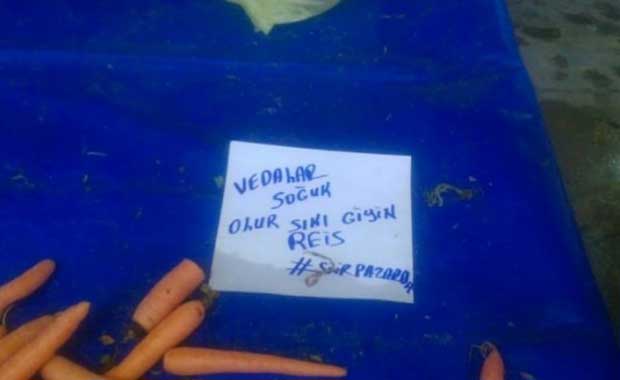 VEDALAR
SOĞUK
OLUR SIKI GİYİN
REİS
#ŞİİRPAZARDA